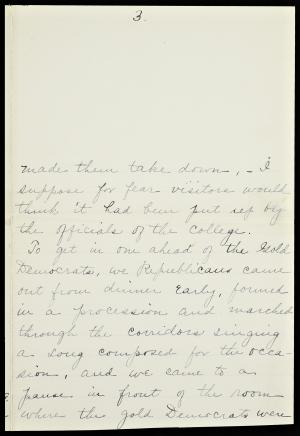 3.
made them take down, - I
suppose for fear visitors would
think it had been put up by
the officials of the college.
To get in one ahead of the Gold
Democrats, we Republicans came
out from dinner early, formed
in a procession and marched
through the corridors singing
a song composed for the occa-
sion, and we came to a
pause in front of the room
where the gold Democrats were